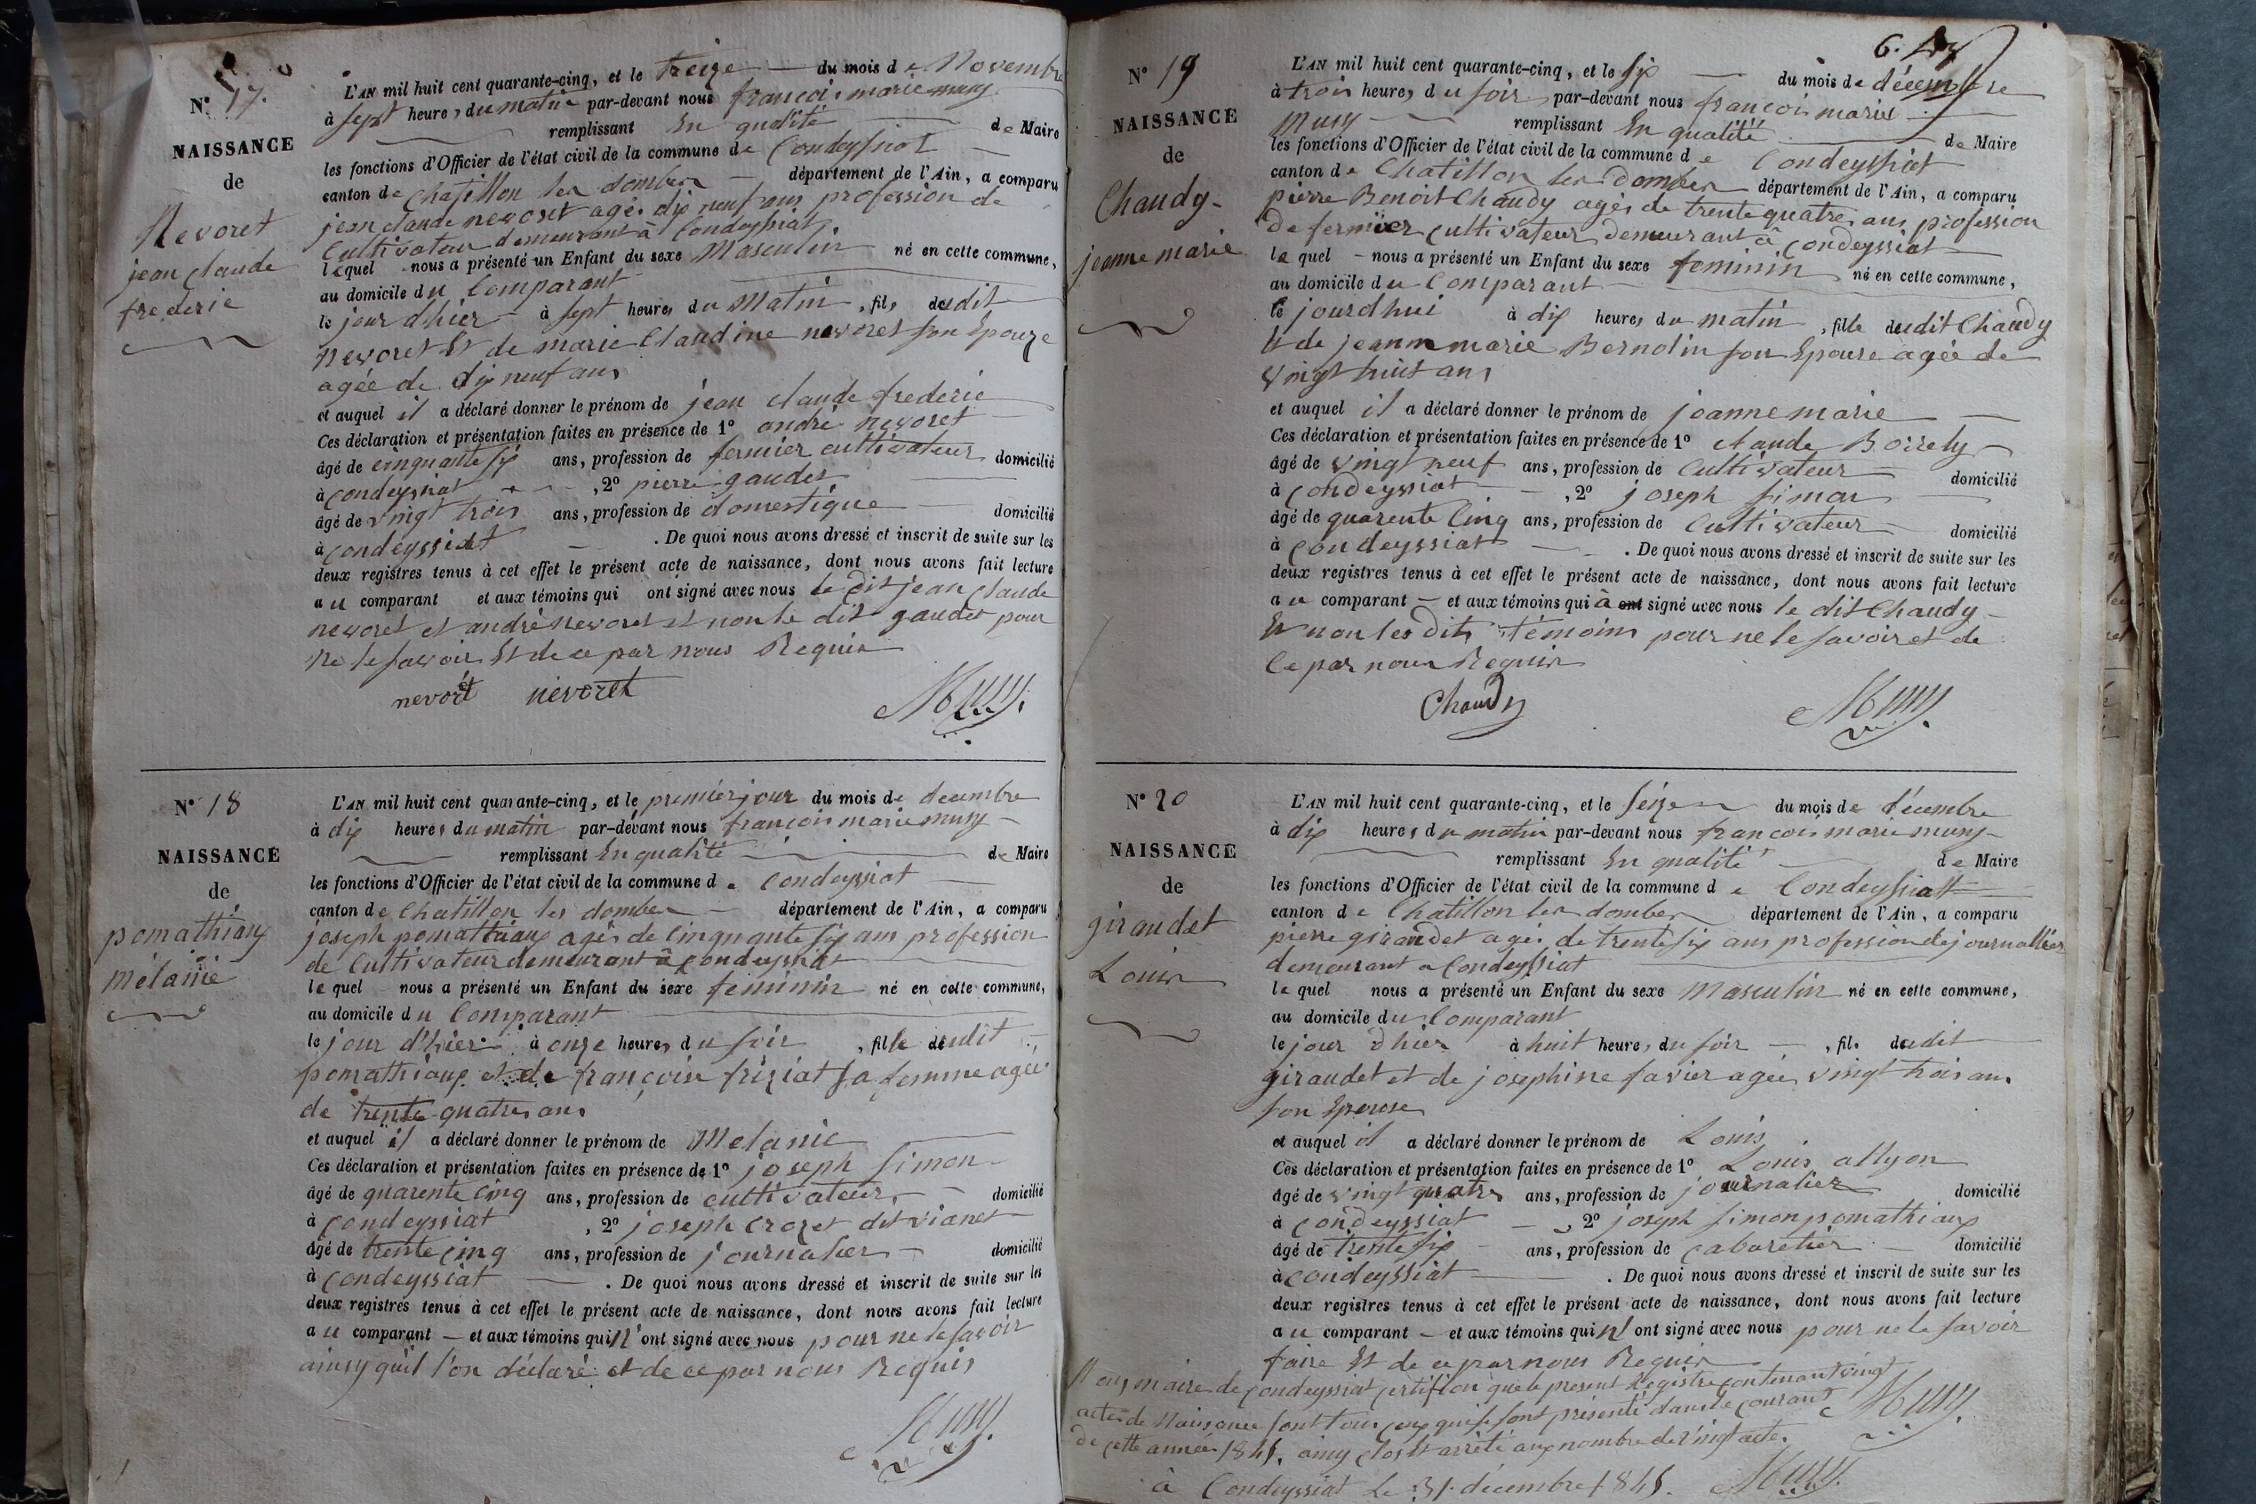 N° 17.
NAISSANCE
de
Nevoret
jean claude
frederic
L'AN mil huit cent quarante-cinq, et le treize du mois de Novembre
à sept heures du matin par-devant nous francois marie musy
remplissant En qualité de Maire
les fonctions d'Officier de l'état civil de la commune de Condeyssiat
canton de Chatillon les dombes département de l'Ain, a comparu
jean claude nevoret agés dix neuf ans profession de
Cultivateur demeurant à Condeyssiat
lequel nous a présenté un Enfant du sexe Masculin né en cette commune,
au domicile du Comparant
le jour d'hier à sept heures du Matin, fils dudit
nevoret Et de marie Claudine nevoret son Epouze
agée de dix neuf ans
et auquel il a déclaré donner le prénom de jean claude frederic
Ces déclaration et présentation faites en présence de 1° andré nevoret
âgé de cinquante six ans, profession de fermier cultivateur domicilié
à condeyssiat, 2° pierre gaudet
âgé de vingt trois ans, profession de domestique domicilié
à condeyssiat. De quoi nous avons dressé et inscrit de suite sur les
deux registres tenus à cet effet le présent acte de naissance, dont nous avons fait lecture
au comparant et aux témoins qui ont signé avec nous le dit jean claude
nevoret et andré nevoret et non le dit gaudet pour
ne le savoir Et de ce par nous Requis
nevoret nevoret Musy
N° 18
NAISSANCE
de
pomathiaux
mélanie
L'AN mil huit cent quarante-cinq, et le premier jour du mois de decembre
à dix heures du matin par-devant nous francois marie musy
remplissant En qualité de Maire
les fonctions d'Officier de l'état civil de la commune de Condeyssiat
canton de Chatillon les dombes département de l'Ain, a comparu
joseph pomathiaux agés de Cinquante six ans profession
de Cultivateur demeurant à Condeyssiat
lequel nous a présenté un Enfant du sexe feminin né en cette commune,
au domicile du Comparant
le jour d'hier à onze heures du soir, fille dudit
pomathiaux et de françoise friziat sa femme agée
de trente quatres ans
et auquel il a déclaré donner le prénom de Melanie
Ces déclaration et présentation faites en présence de 1° joseph simon
âgé de quarente cinq ans, profession de cultivateur domicilié
à condeyssiat, 2° joseph crozet dit vianet
âgé de trente cinq ans, profession de journalier domicilié
à condeyssiat. De quoi nous avons dressé et inscrit de suite sur les
deux registres tenus à cet effet le présent acte de naissance, dont nous avons fait lecture
au comparant et aux témoins qui n'ont signé avec nous pour ne le savoir
ainsy qu'il l'on déclaré et de ce par nous Requis
Musy
6.
N° 19
NAISSANCE
de
Chaudy
jeanne marie
L'AN mil huit cent quarante-cinq, et le six du mois de décembre
à trois heures du soir par-devant nous francois marie
musy remplissant En qualité de Maire
les fonctions d'Officier de l'état civil de la commune de Condeyssiat
canton de Chatillon les Dombes département de l'Ain, a comparu
pierre Benoit Chaudy agés de trente quatres ans profession
De fermier cultivateur demeurant à Condeyssiat
lequel nous a présenté un Enfant du sexe feminin né en cette commune,
au domicile du Comparant
le jourdhui à dix heures du matin, fille dudit Chaudy
Et de jeanne marie Bernolin son Epouse agée de
vingt huit ans
et auquel il a déclaré donner le prénom de jeanne marie
Ces déclaration et présentation faites en présence de 1° claude
âgé de vingt neuf ans, profession de Cultivateur domicilié
à condeyssiat, 2° joseph simon
âgé de quarente Cinq ans, profession de Cultivateur domicilié
à condeyssiat. De quoi nous avons dressé et inscrit de suite sur les
deux registres tenus à cet effet le présent acte de naissance, dont nous avons fait lecture
au comparant et aux témoins qui à ont signé avec nous le dit Chaudy
Et non les Dits témoins pour ne le savoir et de
Ce par nous Requis
Chaudy Musy
N° 20
NAISSANCE
de
giraudet
Louis
L'AN mil huit cent quarante-cinq, et le seize du mois de décembre
à dix heures du matin par-devant nous francois marie musy
remplissant En qualité de Maire
les fonctions d'Officier de l'état civil de la commune de Condeyssiatt
canton de Chatillon les dombes département de l'Ain, a comparu
pierre giraudet agés de trente six ans profession de journallier
demeurant a Condeyssiat
lequel nous a présenté un Enfant du sexe Masculin né en cette commune,
au domicile du Comparant
le jour d'hier à huit heures du soir, fils dudit
giraudet et de josephine favier agée vingt trois ans
son Epouse
et auquel il a déclaré donner le prénom de Louis
Ces déclaration et présentation faites en présence de 1° Louis allyon
âgé de vingt quatres ans, profession de journalier domicilié
à condeyssiat, 2° joseph simon pomathiaux
âgé de trente six ans, profession de cabaretier domicilié
à condeyssiat. De quoi nous avons dressé et inscrit de suite sur les
deux registres tenus à cet effet le présent acte de naissance, dont nous avons fait lecture
au comparant et aux témoins qui n'ont signé avec nous pour ne le savoir
faire Et de ce par nous Requis
Nous maire de Condeyssiat certifion que le present Registre contenant vingt
actes de Naissance sont tous ceux qui se sont présenté dans le courant Musy
de cette année 1845. ainsy clos Et arrêté aux nombre de vingt acte.
à Condeyssiat Le 31 décembre 1845. Musy